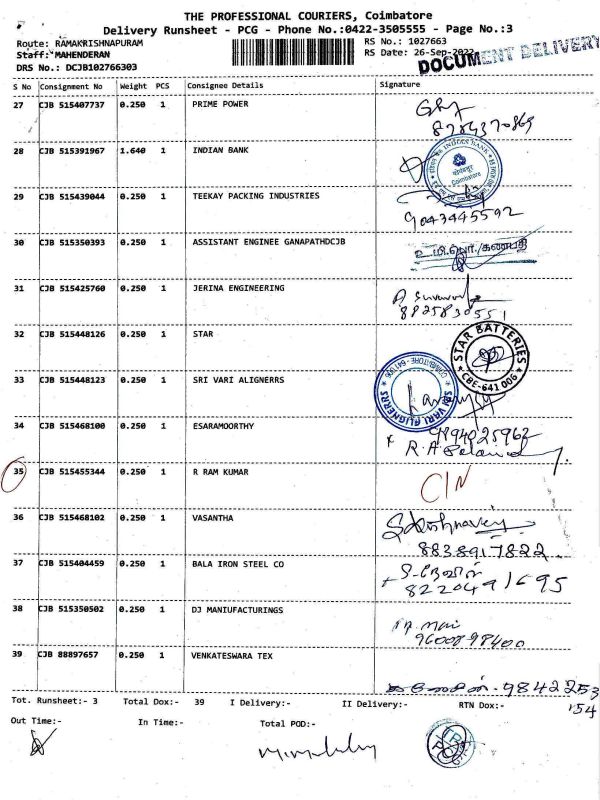 THE PROFESSIONAL COURIERS, Coimbatore
Delivery Runsheet - PCG - Phone No.:0422-3505555 - Page No.:3
Route: RAMAKRISHNAPURAM
RS No.: 1027663
Staff: MAHENDERAN
RS Date: 26-Sep-2022
DOCUMENT DELIVERY
DRS No.: DCJB102766303
S No Consignment No Weight PCS Consignee Details Signature
27 CJB 515407737 0.250 1 PRIME POWER
28 CJB 515391967 1.640 1 INDIAN BANK
INDIAN BANK
Coimbatore
29 CJB 515439044 0.250 1 TEEKAY PACKING INDUSTRIES
9043445592
30 CJB 515350393 0.250 1 ASSISTANT ENGINEE GANAPATHDCJB
உ.மி.பொ./கணபதி
31 CJB 515425760 0.250 1 JERINA ENGINEERING
8825830551
32 CJB 515448126 0.250 1 STAR
STAR BATTERIES
CBE-641 006
33 CJB 515448123 0.250 1 SRI VARI ALIGNERRS
SRI VARI ALIGNERRS
COIMBATORE - 641 006
34 CJB 515468100 0.250 1 ESARAMOORTHY
35 CJB 515455344 0.250 1 R RAM KUMAR
C/N
36 CJB 515468102 0.250 1 VASANTHA
8838917822
37 CJB 515404459 0.250 1 BALA IRON STEEL CO
8220491695
38 CJB 515350502 0.250 1 DJ MANIUFACTURINGS
9600898400
39 CJB 88897657 0.250 1 VENKATESWARA TEX
9842253
154
Tot. Runsheet:- 3 Total Dox:- 39 I Delivery:- II Delivery:- RTN Dox:-
Out Time:- In Time:- Total POD:-